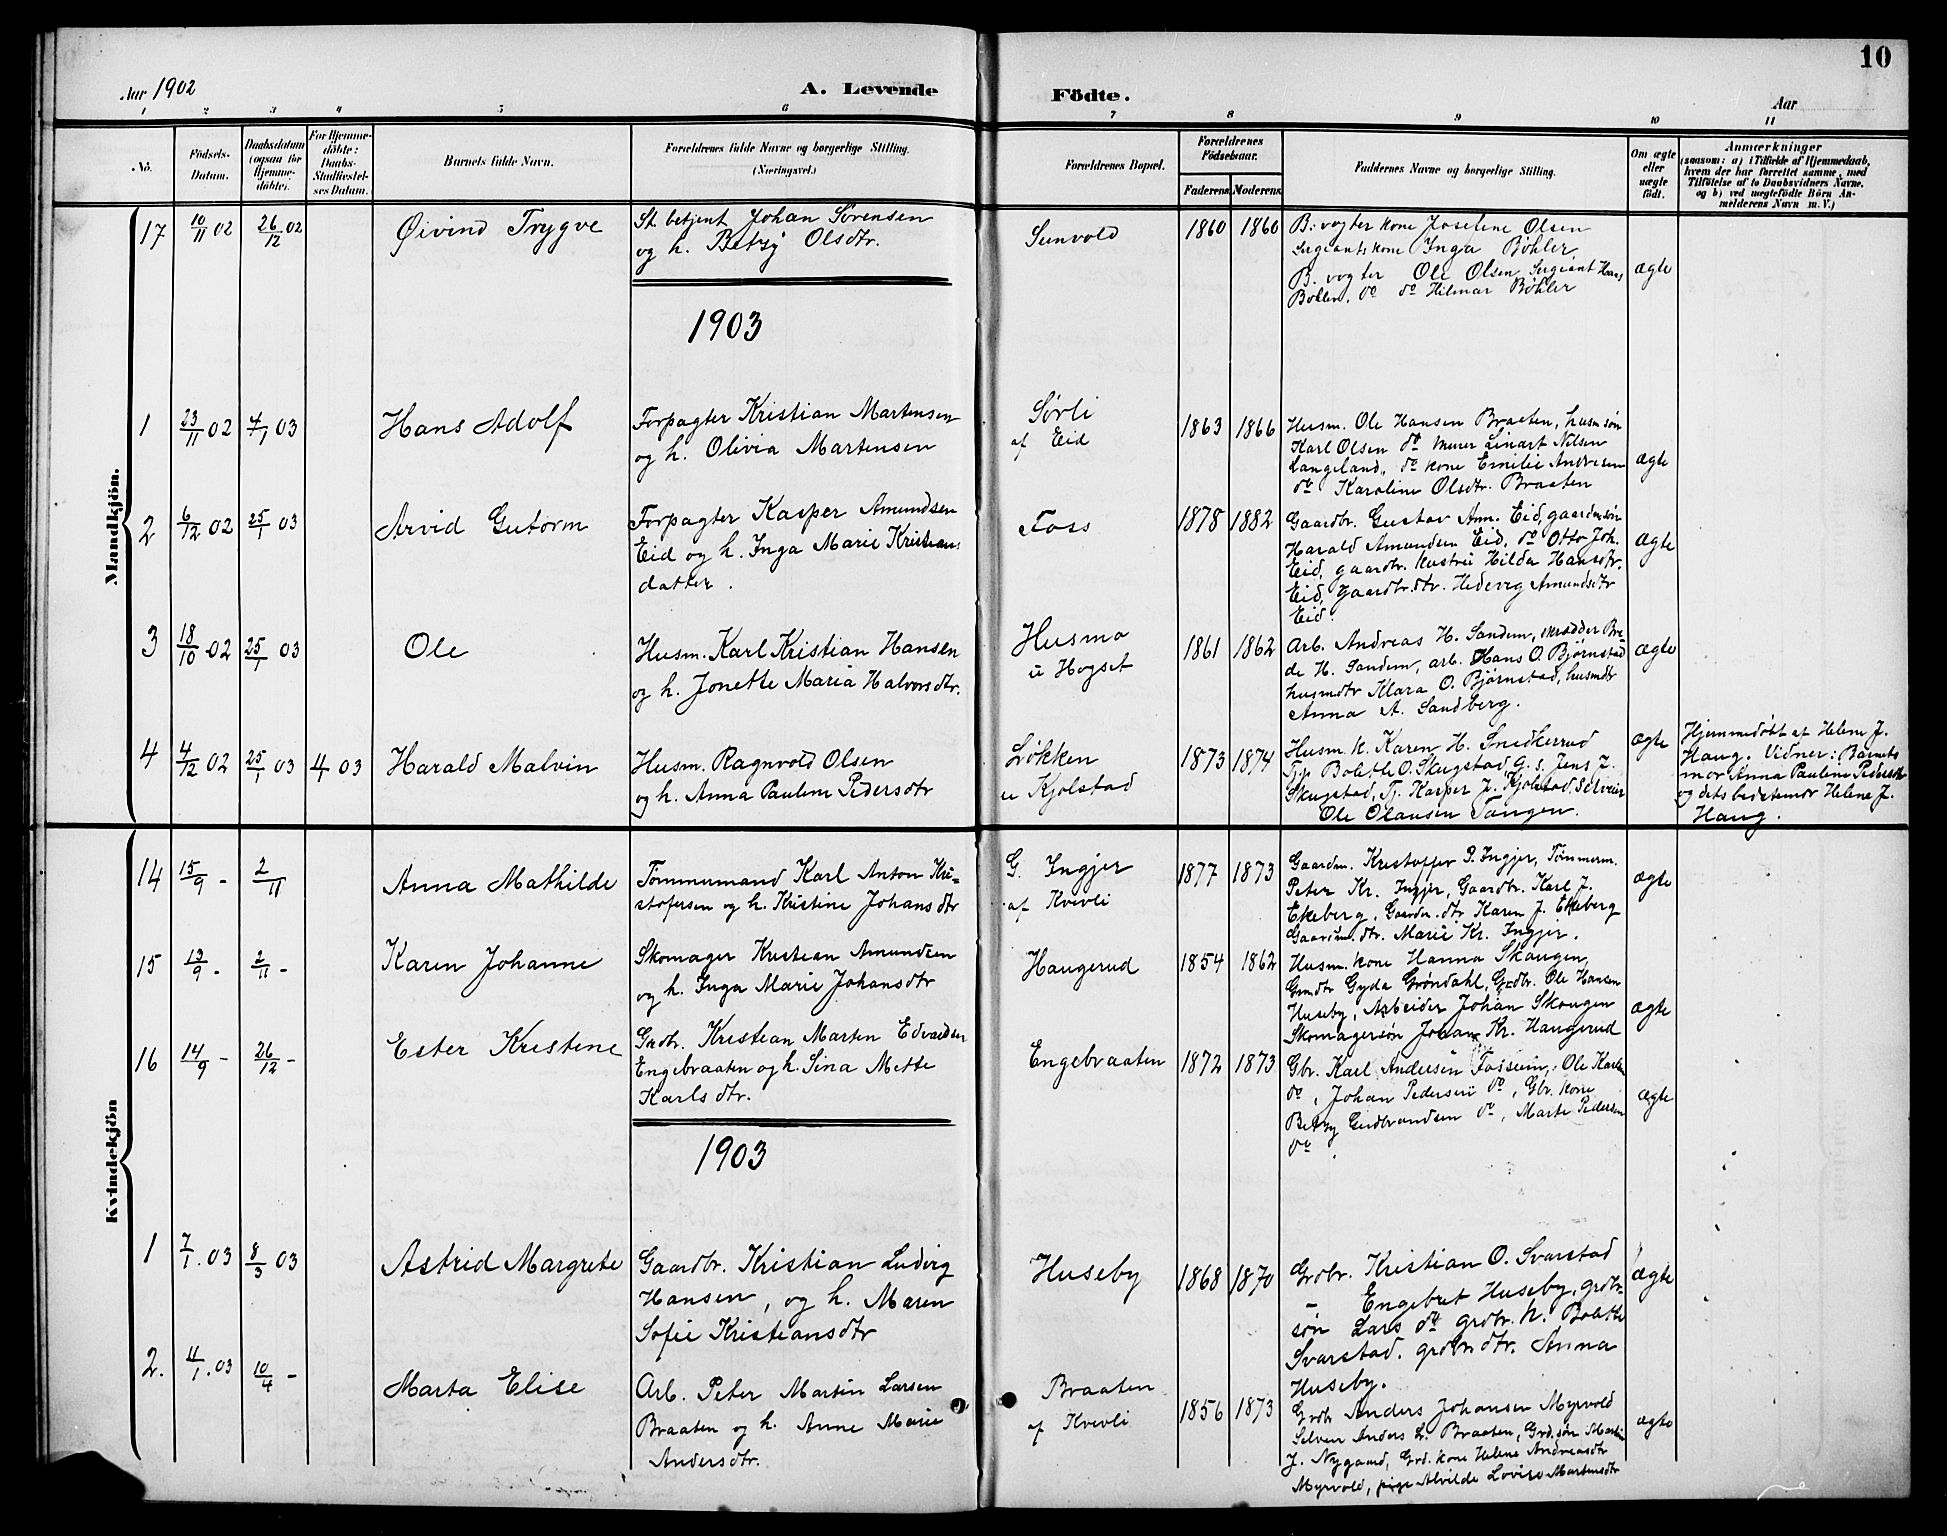 10
Aar 1902
A. Levende
Födte.
Aar
1 2 3 4 5 6 7 8 9 10 11
No.
Födsels-
Datum.
Daabsdatum
(ogsaa for
Hjemme-
döbte).
For Hjemme-
döbte:
Daabs-
Stadfæstel-
ses Datum.
Barnets fulde Navn.
Forældrenes fulde Navne og borgerlige Stilling.
(Næringsvei.)
Forældrenes Bopæl.
Forældrenes
Födselsaar.
Faderens. Moderens.
Faddernes Navne og borgerlige Stilling.
Om ægte
eller
uægte
født.
Anmærkninger
(saasom: a) i Tilfælde af Hjemmedaab,
hvem der har forrettet samme, med
Tilföielse af to Daabsvidners Navne,
og b) ved uegtefödte Börn An-
melderens Navn m. V.)
Mandkjön.
17
10/11 02
26/12 02
Øivind Trygve
St. betjent Johan Sørensen
og h. Betzy Olsdtr.
Sunvold
1860 1860
B. vogter kone Joseline Olsen
Sergiants kone Inga Bøhler
B. vogter Ole Olsen, Sergiant Hans
Bøhler, do do Hilmar Bøhler
ægte
1903
1
23/11 02
7/1 03
Hans Adolf
Forpagter Kristian Martensen
og h. Olivia Martensen
Sørli
af Eid
1863 1866
Husm. Ole Hansen Braaten, husm søn
Karl Olsen do murer Linart Nilsen
Langeland, do kone Emilie Andresen
do Karoline Olsdtr. Braaten
ægte
2
6/12 02
25/1 03
Arvid Gutorm
Forpagter Kasper Amundsen
Eid og h. Inga Marie Kristians
datter.
Foss
1878 1882
Gaardbr. Gustav Am. Eid, gaardmsøn
Harald Amundsen Eid, do Otto Joh.
Eid, gaardbr. hustru Hilda Hansdtr.
Eid, gaardbr.dtr. Hedevig Amundsdtr
Eid.
ægte
3
18/10 02
25/1 03
Ole
Husm. Karl Kristian Hansen
og h. Jonette Maria Halvorsdtr.
Husmo
u Hogset
1861 1862
Arb. Andreas H. Sandem, skrædder Bre-
de H. Sandem, arb. Hans O. Bjørnstad
husmdtr Klara O. Bjørnstad, husmdtr
Anna A. Sandberg.
ægte
4
4/12 02
25/1 03
4/1 03
Harald Malvin
Husm. Ragnvold Olsen
og h. Anna Pauline Pedersdtr
Løkken
u Kjolstad
1873 1874
Husm. k. Karen H. Snedkerrud
Tj. Bolette O. Skugstad G. s. Jens J.
Skugstad, Tj. Kasper J. Kjolstad,
Ole Olausen Tangen.
ægte
Hjemmedøbt af Helene J.
Haug. Vidner: Barnets
mor Anna Pauline Pedersdtr
og dets bedstemor Helene J.
Haug.
Kvindekjön
14
15/9 -
2/11
Anna Mathilde
Tømmermand Karl Anton Kri-
stofersen og h. Kristine Johansdtr
G. Ingjer
af Kvivli
1877 1873
Gaardm. Kristoffer P. Ingjer, Tømmerm.
Peter Kr. Ingjer, Gaardbr. Karl J.
Ekeberg, Gaardbr. dtr Karen J. Ekeberg
Gaardm. dtr. Marie Kr. Ingjer.
ægte
15
13/9 -
2/11 -
Karen Johanne
Skomager Kristian Amundsen
og h. Inga Marie Johansdtr
Haugerud
1854 1862
Husm. kone Hanna Skaugen,
Grmdtr Gyda Grøndahl, Grdbr. Ole Hansen
Huseby, Arbeider Johan Skougen
Skomagersøn Johan Kr. Haugerud
ægte
16
14/9 -
26/12 -
Ester Kristine
Grdbr. Kristian Marten Edvardsen
Engebraaten og h. Sina Mette
Karlsdtr.
Engebraaten
1872 1873
Gbr. Karl Andersen Fossum, Ole Karlsen
do, Johan Pedersen do, Gbr. kone
Betzy Gudbrandsen do, Marte Pedersen
do
ægte
1903
1
7/1. 03
8/3 03
Astrid Margrete
Gaardbr. Kristian Ludvig
Hansen, og h. Maren
Sofie Kristiansdtr
Huseby
1868 1870
Grdbr. Kristian O. Svarstad
- Engebret Huseby, grdbr-
søn Lars do grdbr. k. Bolette
Svarstad. grdbr dtr. Anna
Huseby.
ægte
2.
4/1. 03
10/4 -
Marta Elise
Arb. Peter Martin Larsen
Braaten og h. Anne Marie
Andersdtr.
Braaten
af Kvivli
1856 1873
Grdbr Anders Johansen Myrvold
Selveier Anders L. Braaten, Grd.søn Martin
J. Nygaard, Grd. kone Helene Andreasdtr
Myrvold, pige Alvilde Lovise Martinsdtr
ægte